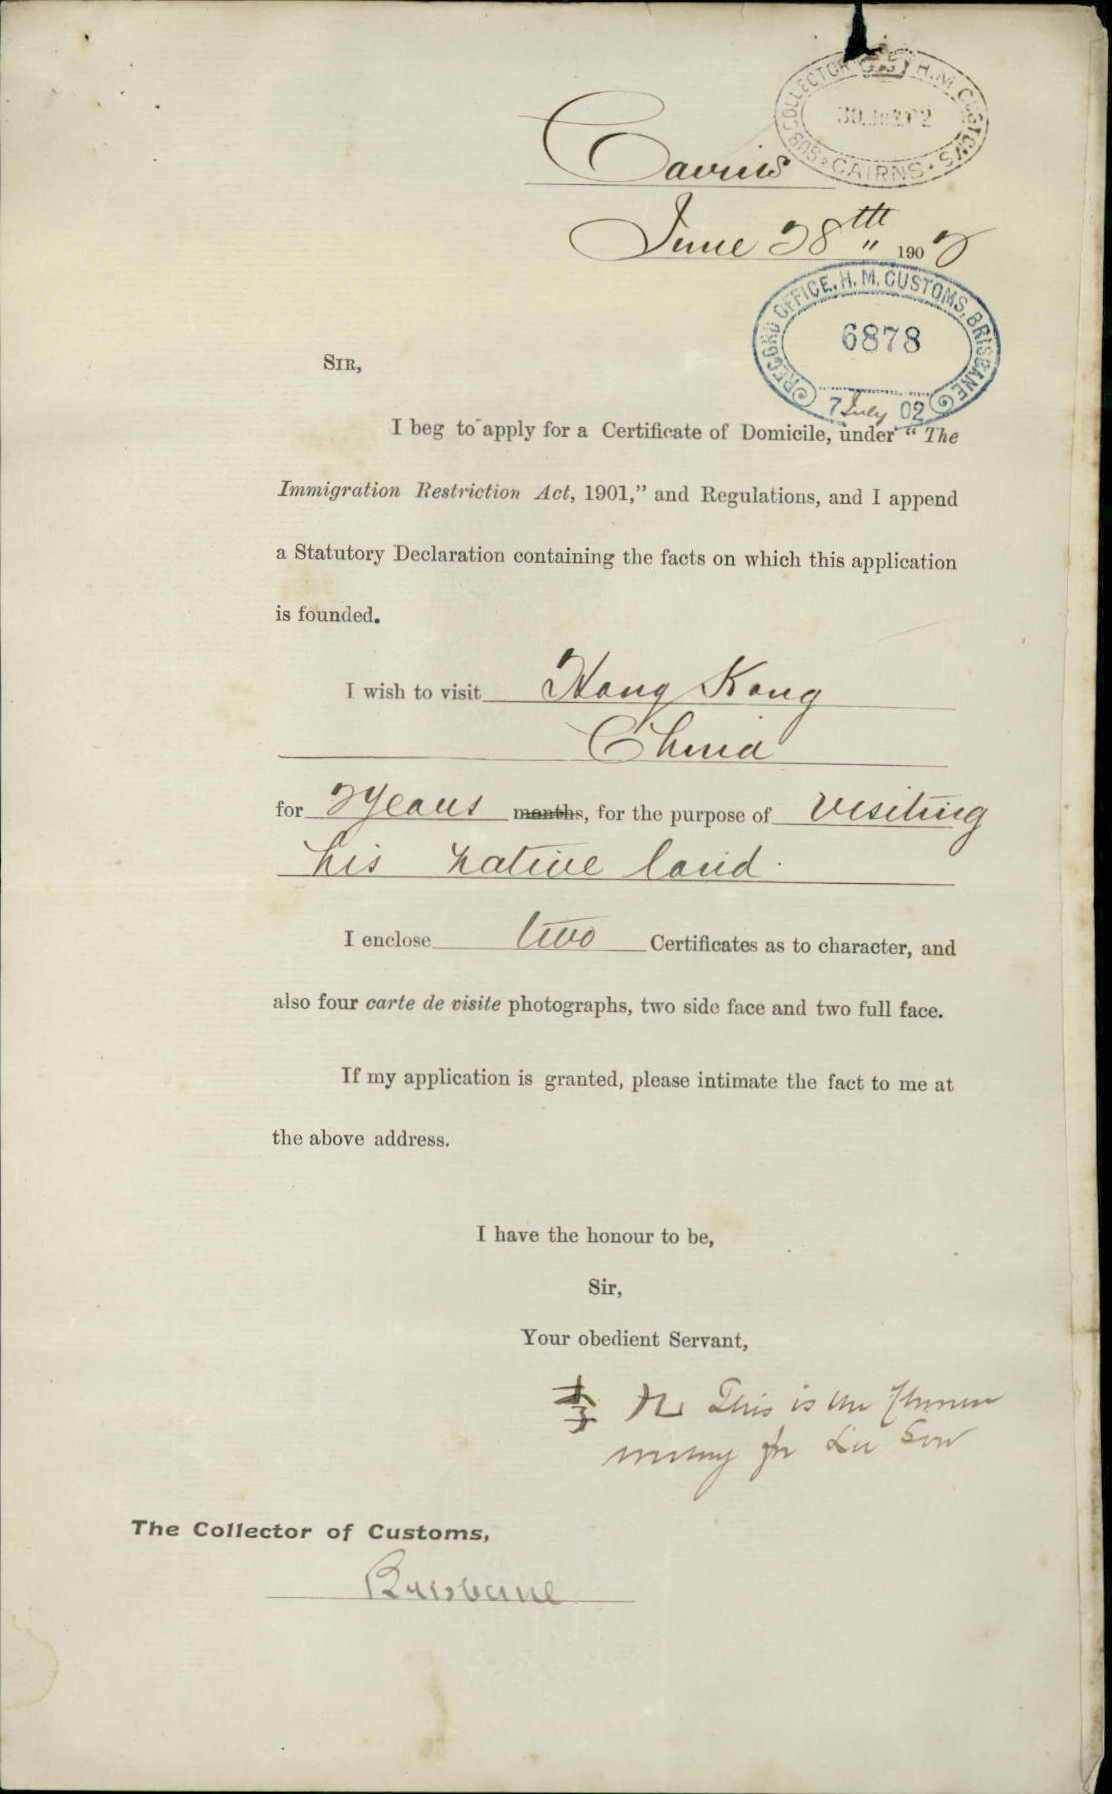 SUB COLLECTOR H.M. CUSTOMS
30 1902
CAIRNS
Cairns
June 28th 1902
RECORD OFFICE, H. M. CUSTOMS, BRISBANE
6878
7 July 02
SIR,
I beg to apply for a Certificate of Domicile, under "The
Immigration Restriction Act, 1901," and Regulations, and I append
a Statutory Declaration containing the facts on which this application
is founded.
I wish to visit Hong Kong
China
for 2 years months, for the purpose of visiting
his native land.
I enclose two Certificates as to character, and
also four carte de visite photographs, two side face and two full face.
If my application is granted, please intimate the fact to me at
the above address.
I have the honour to be,
Sir,
Your obedient Servant,
李 This is the Chinese
for Lee Sow
The Collector of Customs,
Brisbane